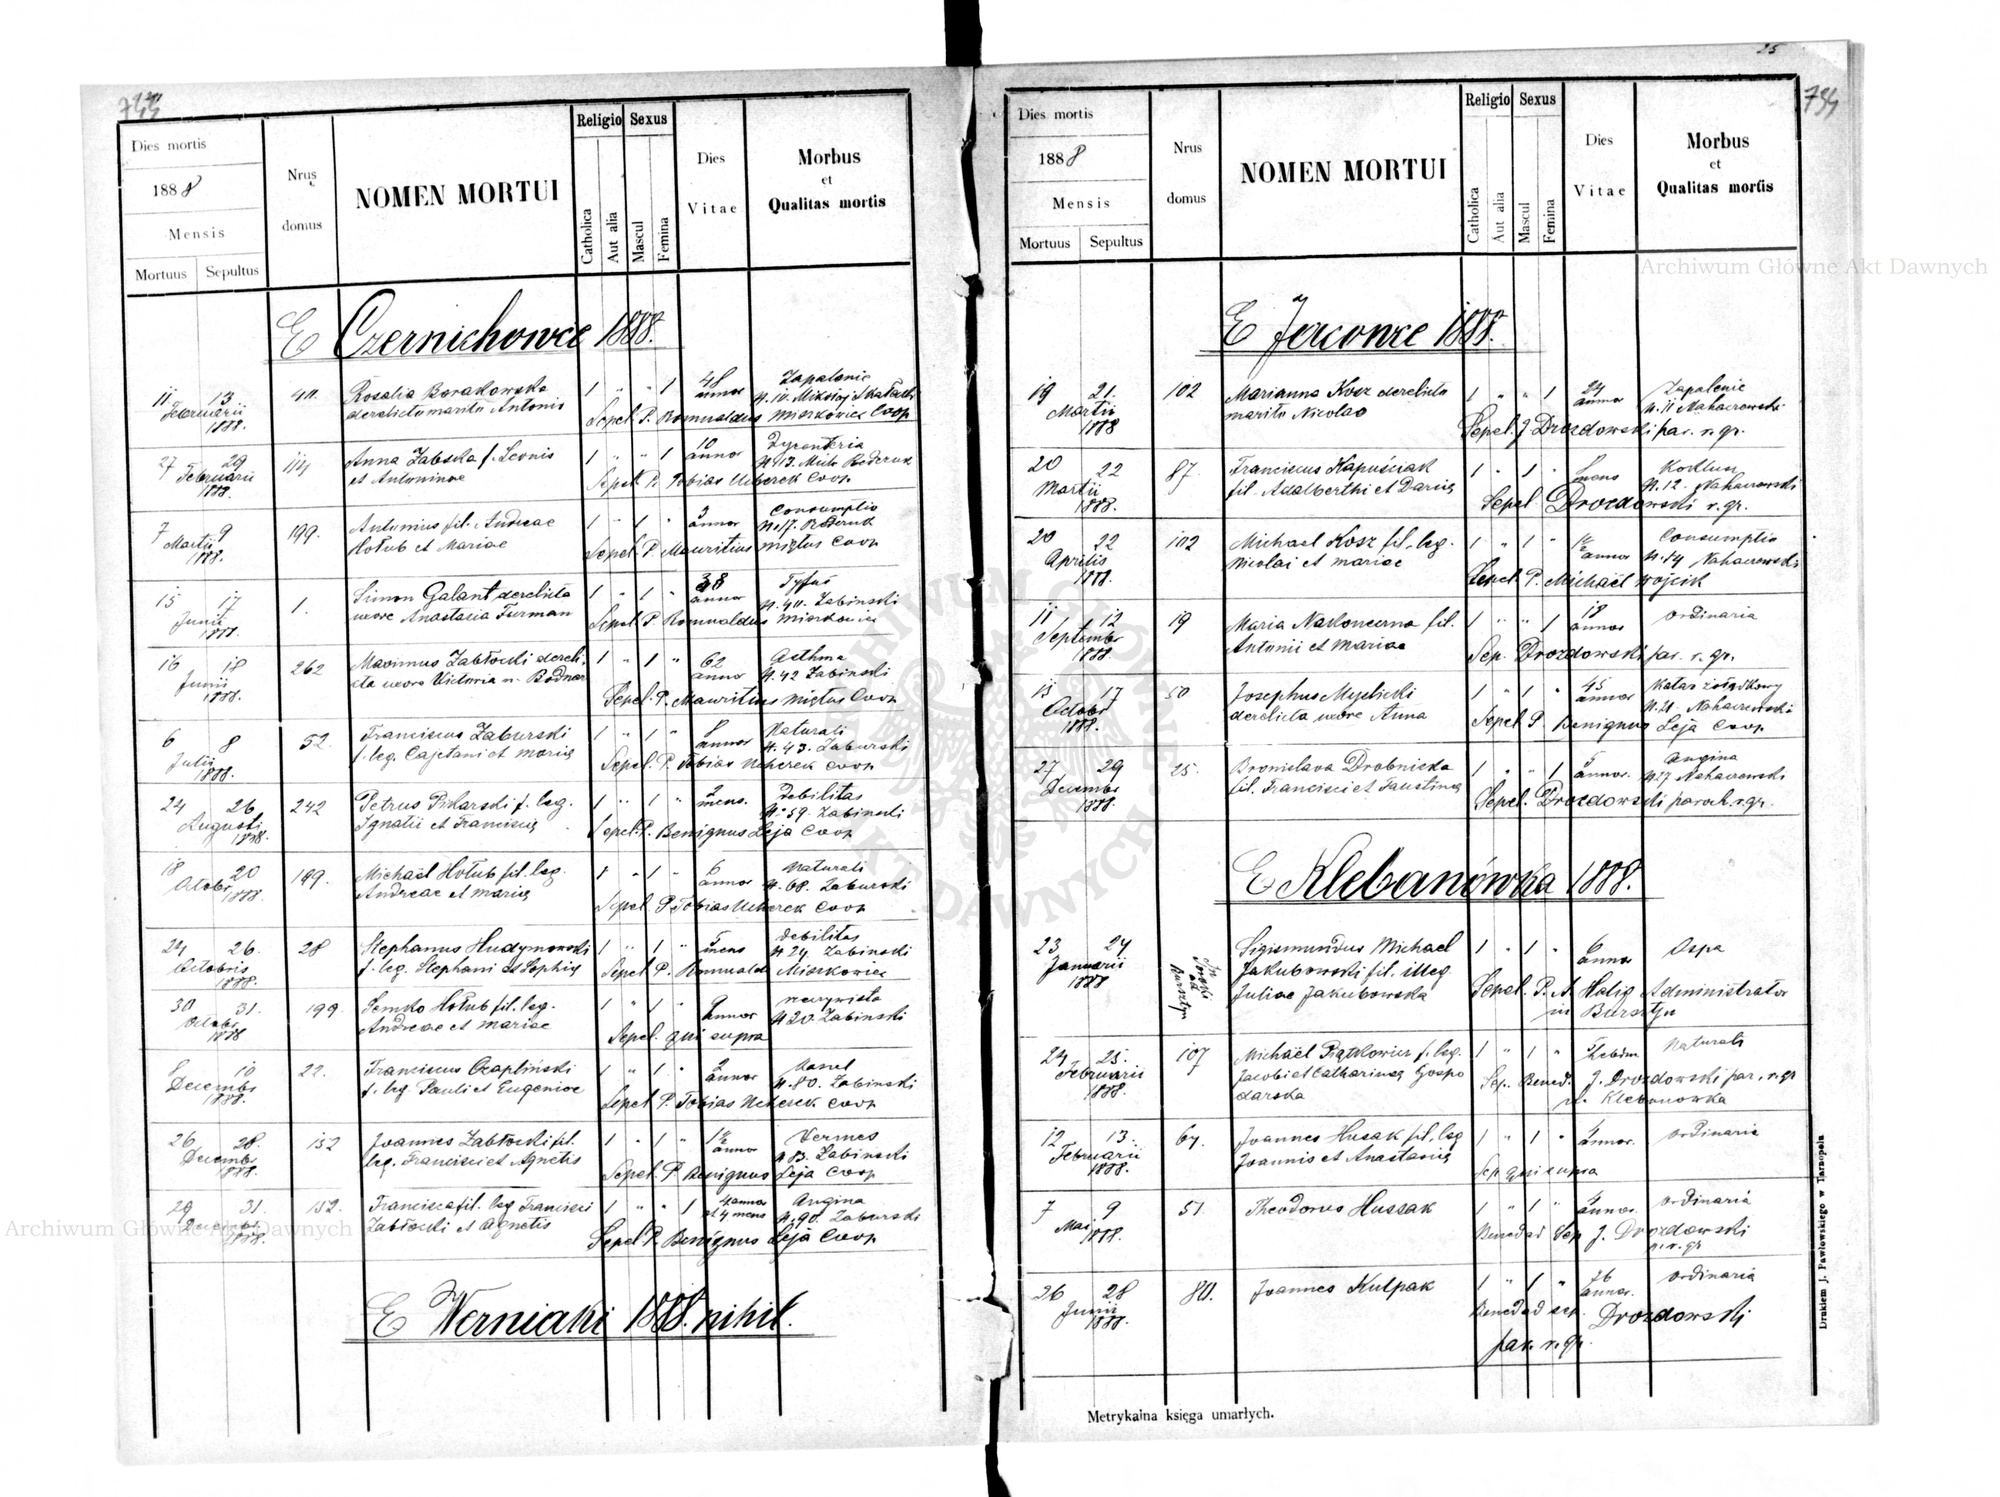 Dies mortis
1888
Mensis
Mortuus Sepultus
Nrus domus
NOMEN MORTUI
Religio
Catholica
Aut alia
Sexus
Mascul
Femina
Dies Vitae
Morbus
et
Qualitas mortis
E Czernichowce 1888.
11 13
Februarii
1888.
Rosalia Borakowska
derelicta marito Antonio
1 " " 1
48
annor
Zapalenie
Sepel. P. Romualdus Miskowicz Coop
27 29
Februarii
1888.
114
Anna Zabska f. Leonis
et Antoninae
1 " " 1
10
annor
Dyzenteria
Sepel. P. Tobias Coop
7 9
Martii
1888.
199.
Antonius fil. Andreae
Hołub et Mariae
1 " 1 "
3
annor
Consumptio
Sepel. P. Mauritius Miętus Coop
15 17
Junii
1888.
1.
Simon Galant derelicta
uxore Anastasia Furman
1 " 1 "
38
annor
Tyfus
N. 40. Zabinski
Sepel. P. Romualdus
16 18
Junii
1888.
262
Maximus Zabłocki derelicta
uxore Victoria n. Bodnar
1 " 1 "
62
annor
Asthma
N. 42 Zabinski
Sepel. P. Mauritius Miętus Coop
6 8
Julii
1888.
52.
Franciscus Zaburski
f. leg. Cajetani et Mariae
1 " 1 "
8
annor
Naturali
N. 43. Zaburski
Sepel. P. Tobias Coop
24 26
Augusti
1888.
242
Petrus f. leg.
Ignatii et Franciscae
1 " 1 "
2
mens.
Debilitas
N. 59. Zabinski
Sepel. P. Benignus Leja Coop
18 20
Octobr
1888.
199.
Michaël Hołub fil. leg.
Andreae et Mariae
1 " 1 "
6
annor
Naturali
N. 68. Zaburski
Sepel. P. Tobias Coop
24 26.
Octobris
1888.
28
Stephanus Hudymowski
f. leg. Stephani et Sophiae
1 " 1 "
5
mens
debilitas
Zabinski
Sepel. P. Romuald Miskowicz
30 31.
Octobr
1888
199
Semko Hołub fil. leg.
Andreae et Mariae
1 " 1 "
9
annor
Zabinski
Sepel. qui supra
8 10
Decembr
1888.
22.
Franciscus Czapliński
f. leg Pauli et Eugeniae
1 " 1 "
2
annor
Kaszel
N. 80. Zabinski
Sepel. P. Tobias Coop
26 28.
Decembr
1888.
152
Joannes Zabłocki fil.
leg. Francisci et Agnetis
1 " 1 "
1½
annor
Vermes
N 83. Zabinski
Sepel. P. Benignus Leja Coop
29 31.
Decembr
1888.
152.
Francisca fil. leg Francisci
Zabłocki et Agnetis
1 " " 1
4 annor
et 4 mens
Angina
N. 90. Zaburski
Sepel P. Benignus Leja Coop
E Werniaki 1888. nihil.
25
Dies mortis
1888
Mensis
Mortuus Sepultus
Nrus domus
NOMEN MORTUI
Religio
Catholica
Aut alia
Sexus
Mascul
Femina
Dies Vitae
Morbus
et
Qualitas mortis
19 21.
Martii
1888
102
Marianna Kosz derelicta
marito Nicolao
1 " " 1
24
annor
Zapalenie
N. 11 Nahaczowski
Sepel. J. Drozdowski par. r. gr.
20 22
Martii
1888.
87.
Franciscus Kapuściak
fil. Adalberthi et Dariae
1 " 1 "
mens
Koklusz
N. 12. Nahaczowski
Sepel Drozdowski r. gr.
20 22
Aprilis
1888.
102
Michael Kosz fil. leg.
Nicolai et Mariae
1 " 1 "
1½
annor
Consumptio
N. 14 Nahaczowski
Sepel. P. Michaël Wojcik
11 12
Septembr
1888.
19
Maria Nakoneczna fil.
Antonii et Mariae
1 " " 1
18
annor
ordinaria
Sep. Drozdowski par. r. gr.
15 17
Octobr
1888.
50
Josephus Myślicki
derelicta uxore Anna
1 " 1 "
45
annor
Katar żołądkowy
N. 21. Nahaczowski
Sepel P. Benignus Leja Coop
27 29
Decembr
1888.
25.
Bronislava Drobnicka
fil. Francisci et Faustinae
1 " " 1
5
annor.
Angina
N. 27 Nahaczowski
Sepel. Drozdowski paroch. r. gr.
E Klebanówka 1888.
23 24
Januarii
1888
Sigismundus Michael
Jakubowski fil. illeg.
Juliae Jakubowska
1 " 1 "
6
annor
Ospa
Sepel. P. A. Halig Administrator
in Bursztyn
24 25.
Februarii
1888.
107
Michaël f. leg.
Jacobi et Catharinae Gospo
darska
1 " 1 "
7 hebdm
Naturali
Sep. Bened. J. Drozdowski par. r. gr
Klebanowka
12 13.
Februarii
1888.
67.
Joannes Husak fil. leg
Joannis et Anastasiae
1 " 1 "
4
annor.
ordinaria
Sep. qui supra
7 9
Mai
1888.
51.
Theodorus Hussak
1 " 1 "
annor.
ordinaria
Sep J. Drozdowski
p. r. gr
26 28
Junii
1888.
80.
Joannes Kulpak
1 " 1 "
76
annor.
ordinaria
sep. Drozdowski
par. r. gr.
Metrykalna księga umarłych.
Drukiem J. Pawłowskiego w Tarnopolu
Archiwum Główne Akt Dawnych
Archiwum Główne Akt Dawnych
ARCHIWUM GŁÓWNE AKT DAWNYCH